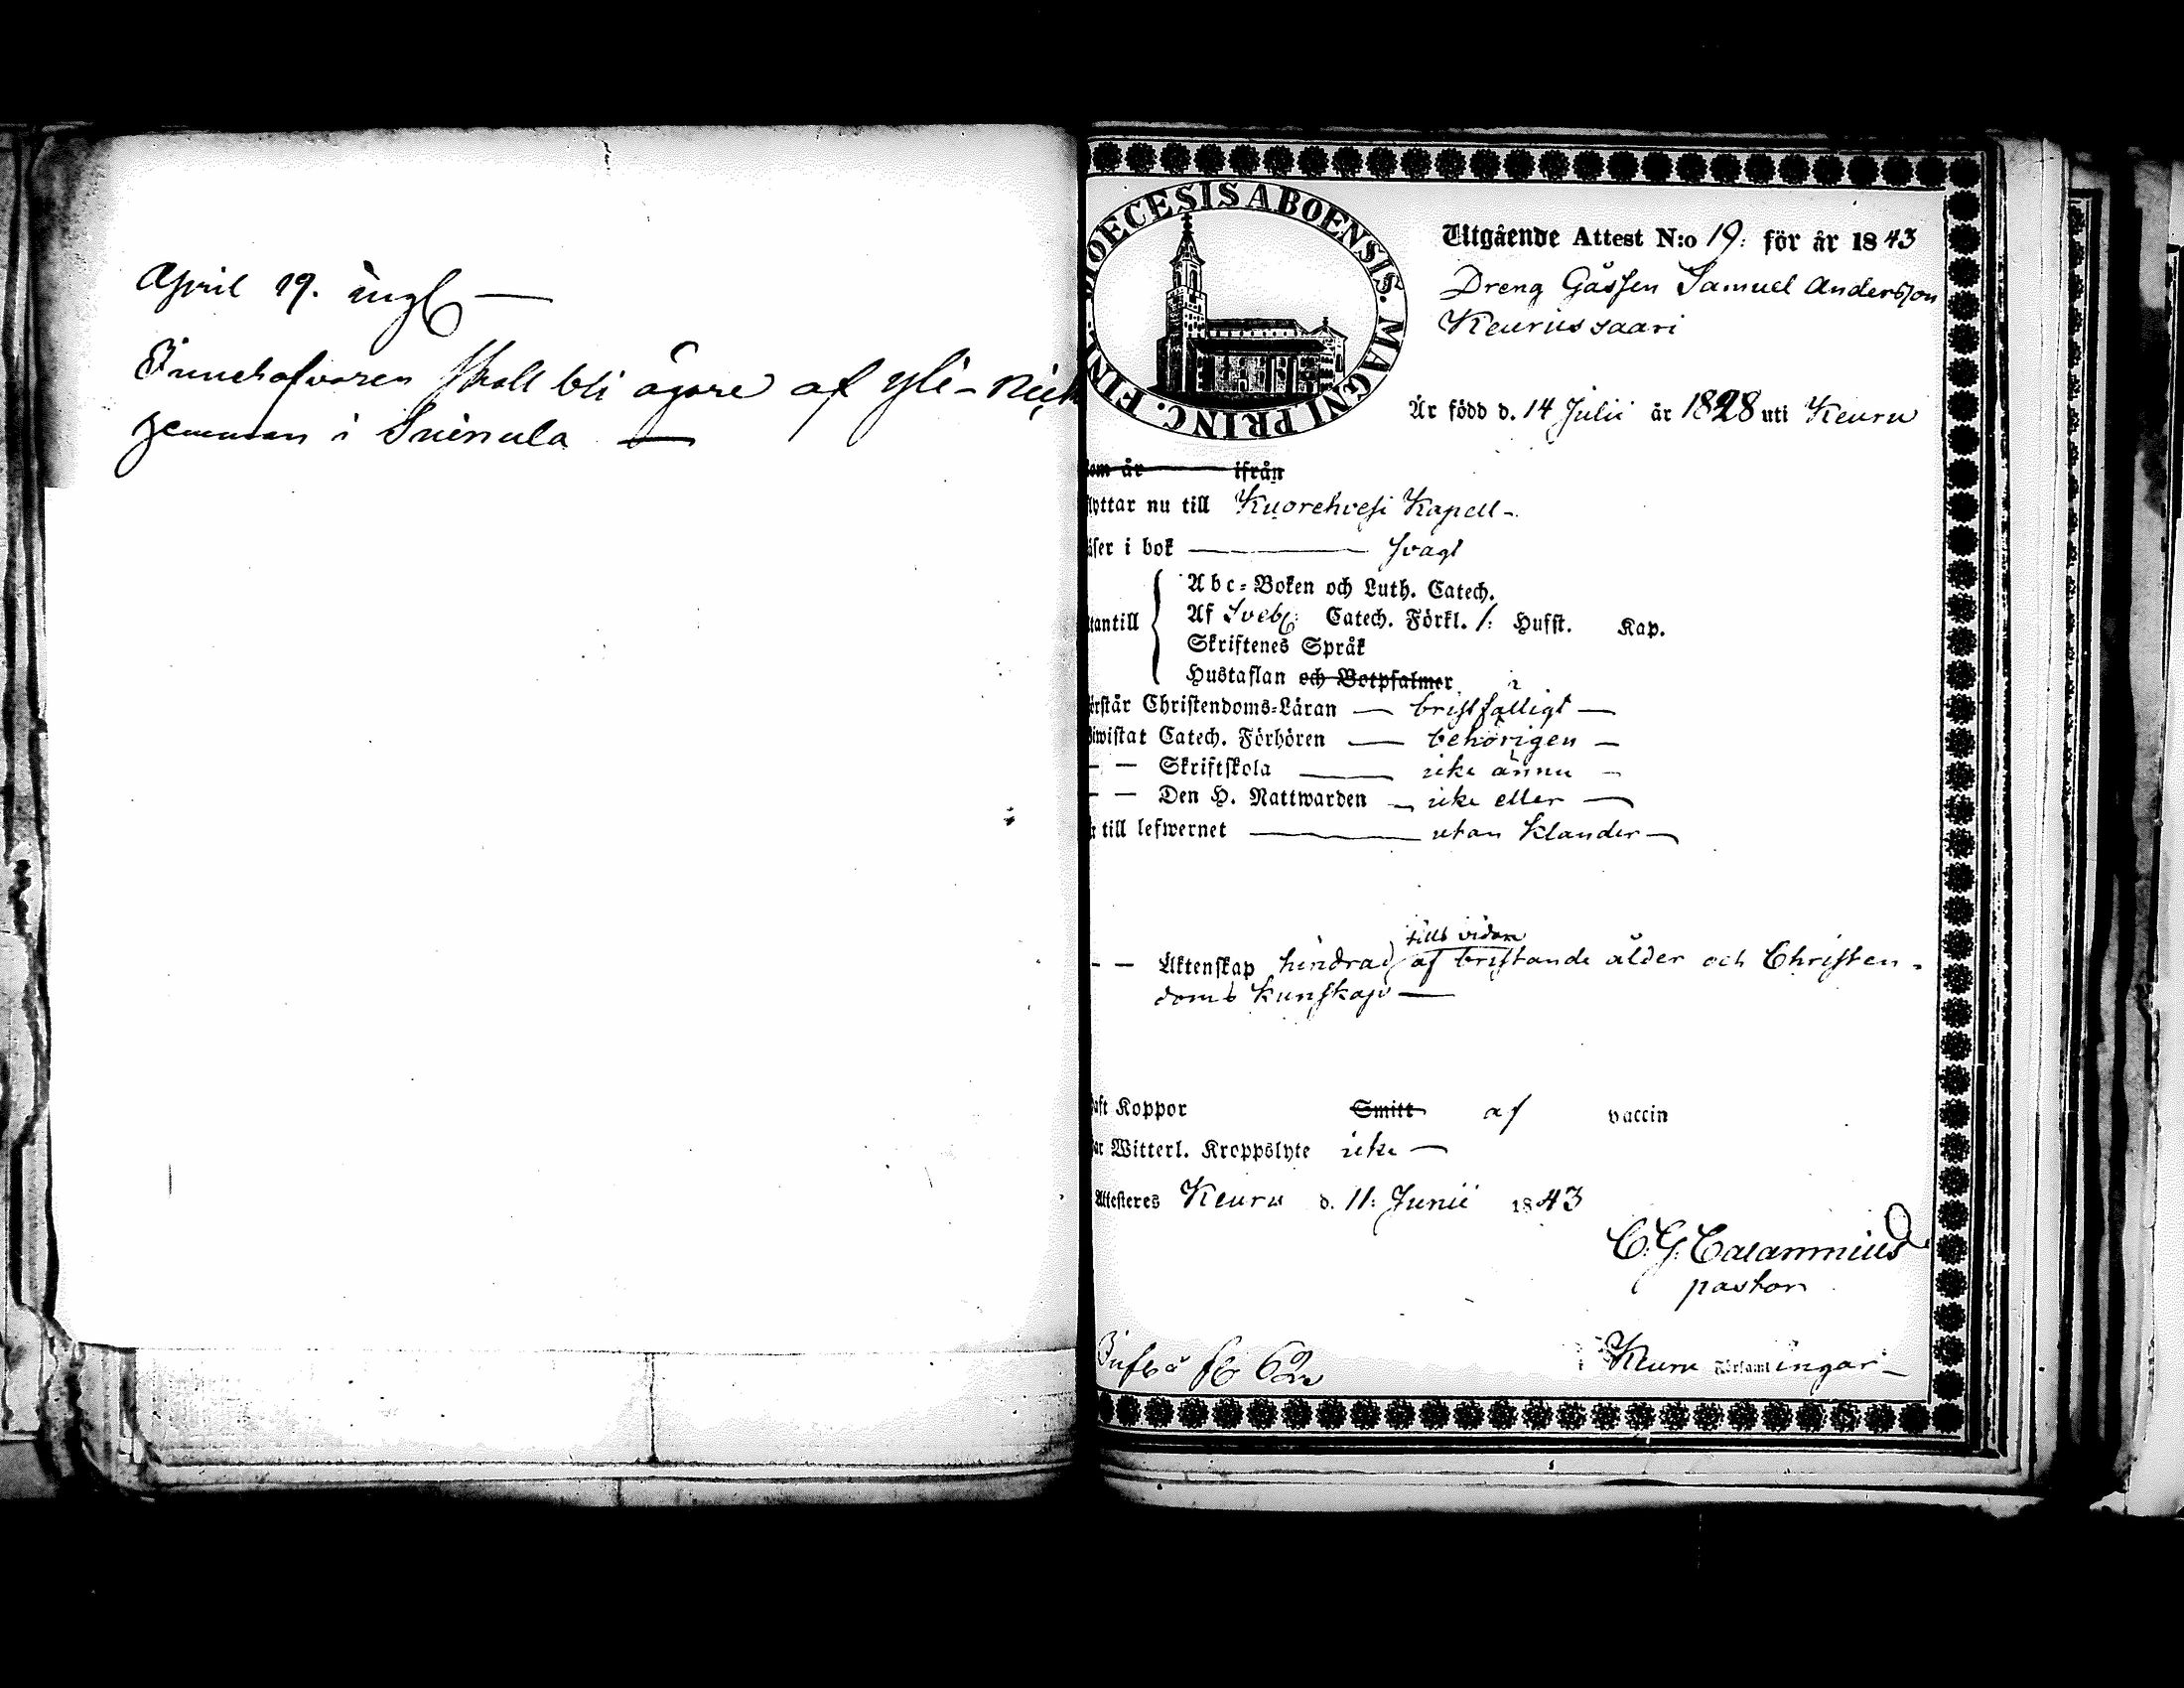 April 19. ingf
Innehafvaren skall bli ägare af Yli-
hemman i Suinula
DIOECESIS ABOENSIS. MAGNI PRINC. FINL.
Utgående Attest N:o 19: för år 1843
Dreng Gåssen Samuel Andersson
Keurussaari
Är född d. 14 Julii år 1828 uti Keuru
Kom år ifrån
flyttar nu till Kuorehvesi Kapell-
äser i bok svagt
Abc-Boken och Luth. Catech.
tantill Af Sveb: Catech. Förkl. /: Husst. Kap.
Skriftenes Språk
Hustaflan och Botpsalmer
örstår Christendoms-Läran bristfälligt
iwistat Catech. Förhören behörigen
— — Skriftskola icke ännu
— — Den H. Nattwarden icke eller
r till lefwernet utan klander
tills vidare
— — Äktenskap hindrad af bristande ålder och Christen-
doms kunskap
aft Koppor Smitt af vaccin
ar Witterl. Kroppslyte icke
Attesteres Keuru d. 11: Junii 1843
C. G. Calamnius
pastor
Keuru Församlingar